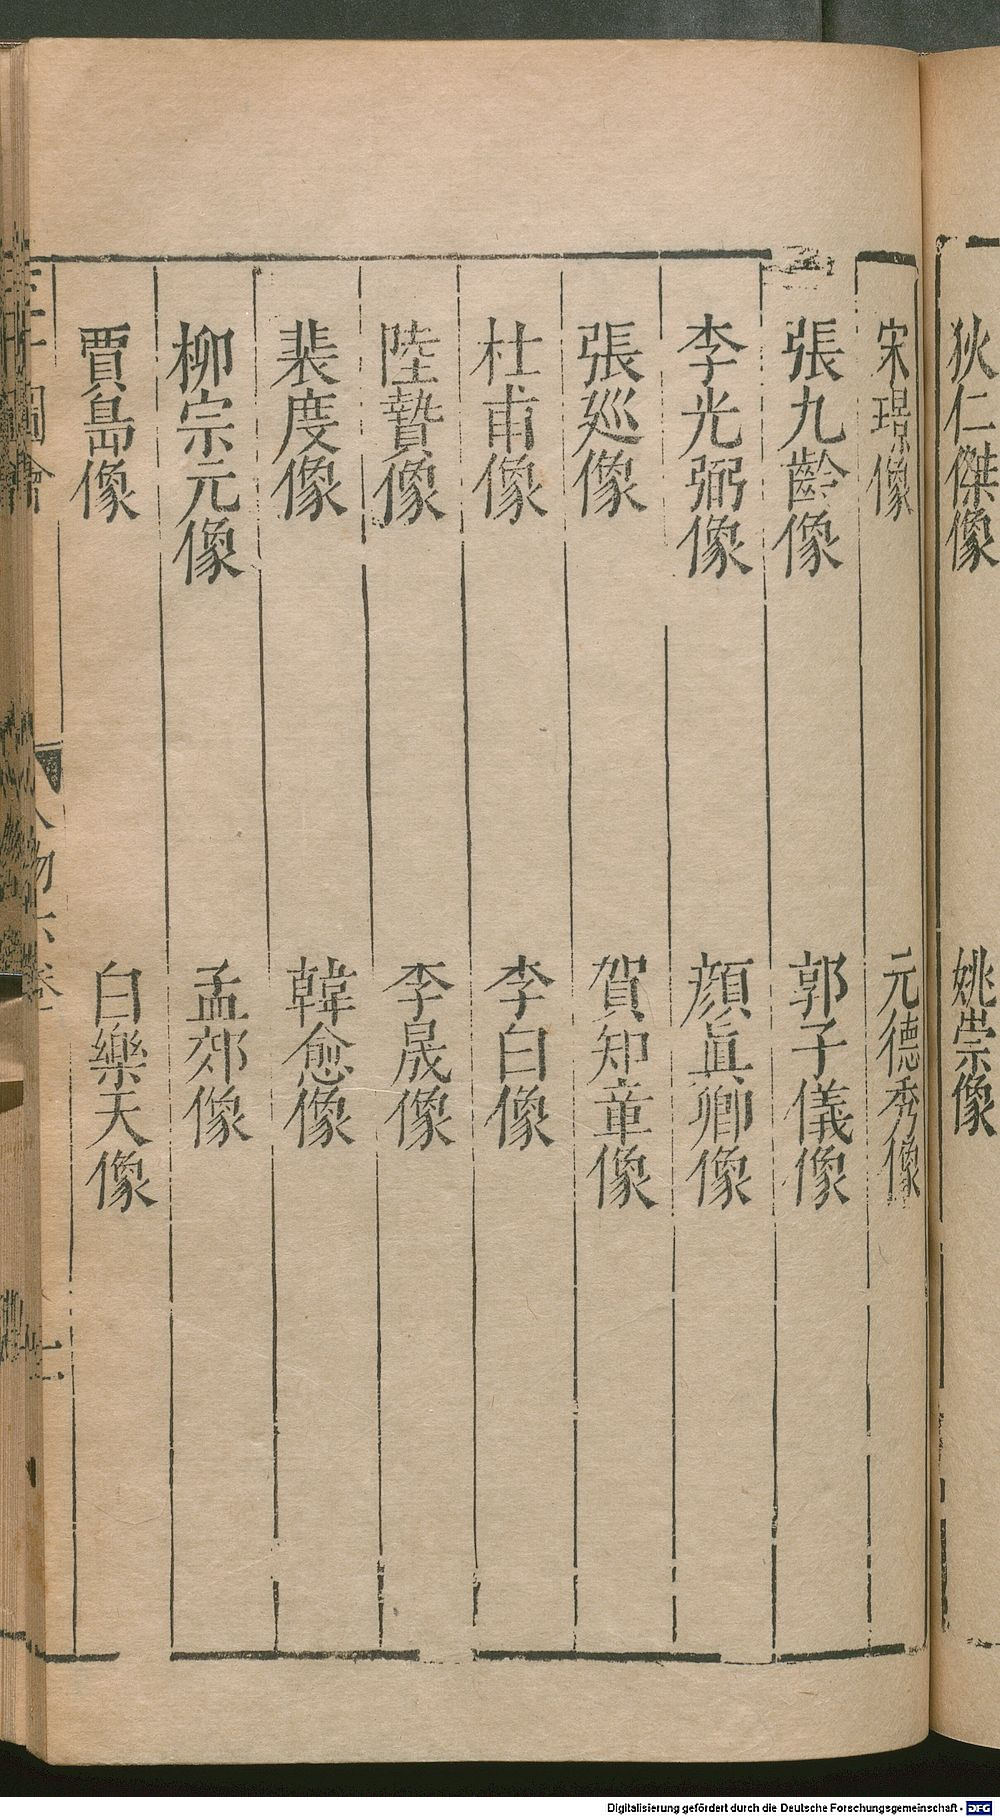 狄仁傑像
姚崇像
宋璟像
元德秀像
張九齡像
郭子儀像
李光弼像
顔眞卿像
張巡像
賀知章像
杜甫像
李白像
陸贄像
李晟像
裴度像
韓愈像
柳宗元像
孟郊像
賈島像
白樂天像
圖會
人物六卷
Digitalisierung gefördert durch die Deutsche Forschungsgemeinschaft - DFG